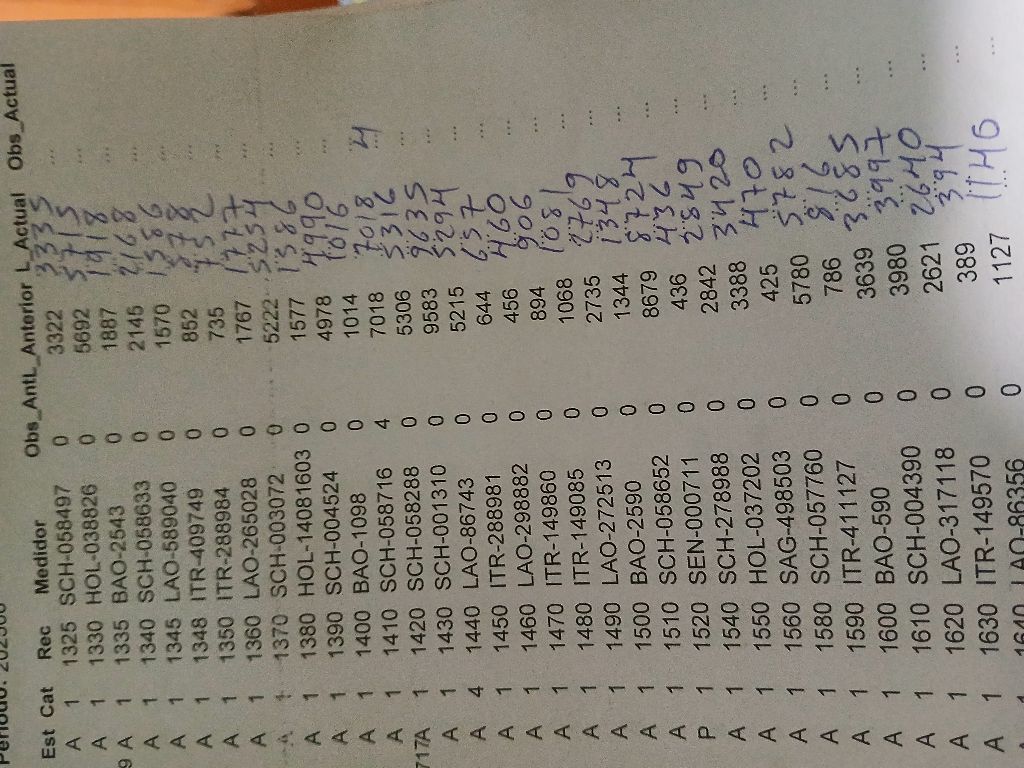 Est Cat Rec Medidor Obs_Ant L_Anterior L_Actual Obs_Actual
A 1 1325 SCH-058497 0 3322 3335 ...
A 1 1330 HOL-038826 0 5692 5715 ...
9 A 1 1335 BAO-2543 0 1887 1918 ...
A 1 1340 SCH-058633 0 2145 2168 ...
A 1 1345 LAO-589040 0 1570 1586 ...
A 1 1348 ITR-409749 0 852 878 ...
A 1 1350 ITR-288984 0 735 752 ...
A 1 1360 LAO-265028 0 1767 1777 ...
A 1 1370 SCH-003072 0 5222 5254 ...
A 1 1380 HOL-14081603 0 1577 1586 ...
A 1 1390 SCH-004524 0 4978 4990 ...
A 1 1400 BAO-1098 0 1014 1016 ...
A 1 1410 SCH-058716 4 7018 7018 4
717A 1 1420 SCH-058288 0 5306 5316 ...
A 1 1430 SCH-001310 0 9583 9635 ...
A 4 1440 LAO-86743 0 5215 5294 ...
A 1 1450 ITR-288981 0 644 657 ...
A 1 1460 LAO-298882 0 456 460 ...
A 1 1470 ITR-149860 0 894 906 ...
A 1 1480 ITR-149085 0 1068 1081 ...
A 1 1490 LAO-272513 0 2735 2769 ...
A 1 1500 BAO-2590 0 1344 1348 ...
A 1 1510 SCH-058652 0 8679 8724 ...
P 1 1520 SEN-000711 0 436 436 ...
A 1 1540 SCH-278988 0 2842 2849 ...
A 1 1550 HOL-037202 0 3388 3420 ...
A 1 1560 SAG-498503 0 425 470 ...
A 1 1580 SCH-057760 0 5780 5782 ...
A 1 1590 ITR-411127 0 786 816 ...
A 1 1600 BAO-590 0 3639 3685 ...
A 1 1610 SCH-004390 0 3980 3997 ...
A 1 1620 LAO-317118 0 2621 2640 ...
A 1 1630 ITR-149570 0 389 394 ...
1640 LAO-86356 0 1127 1146 ...